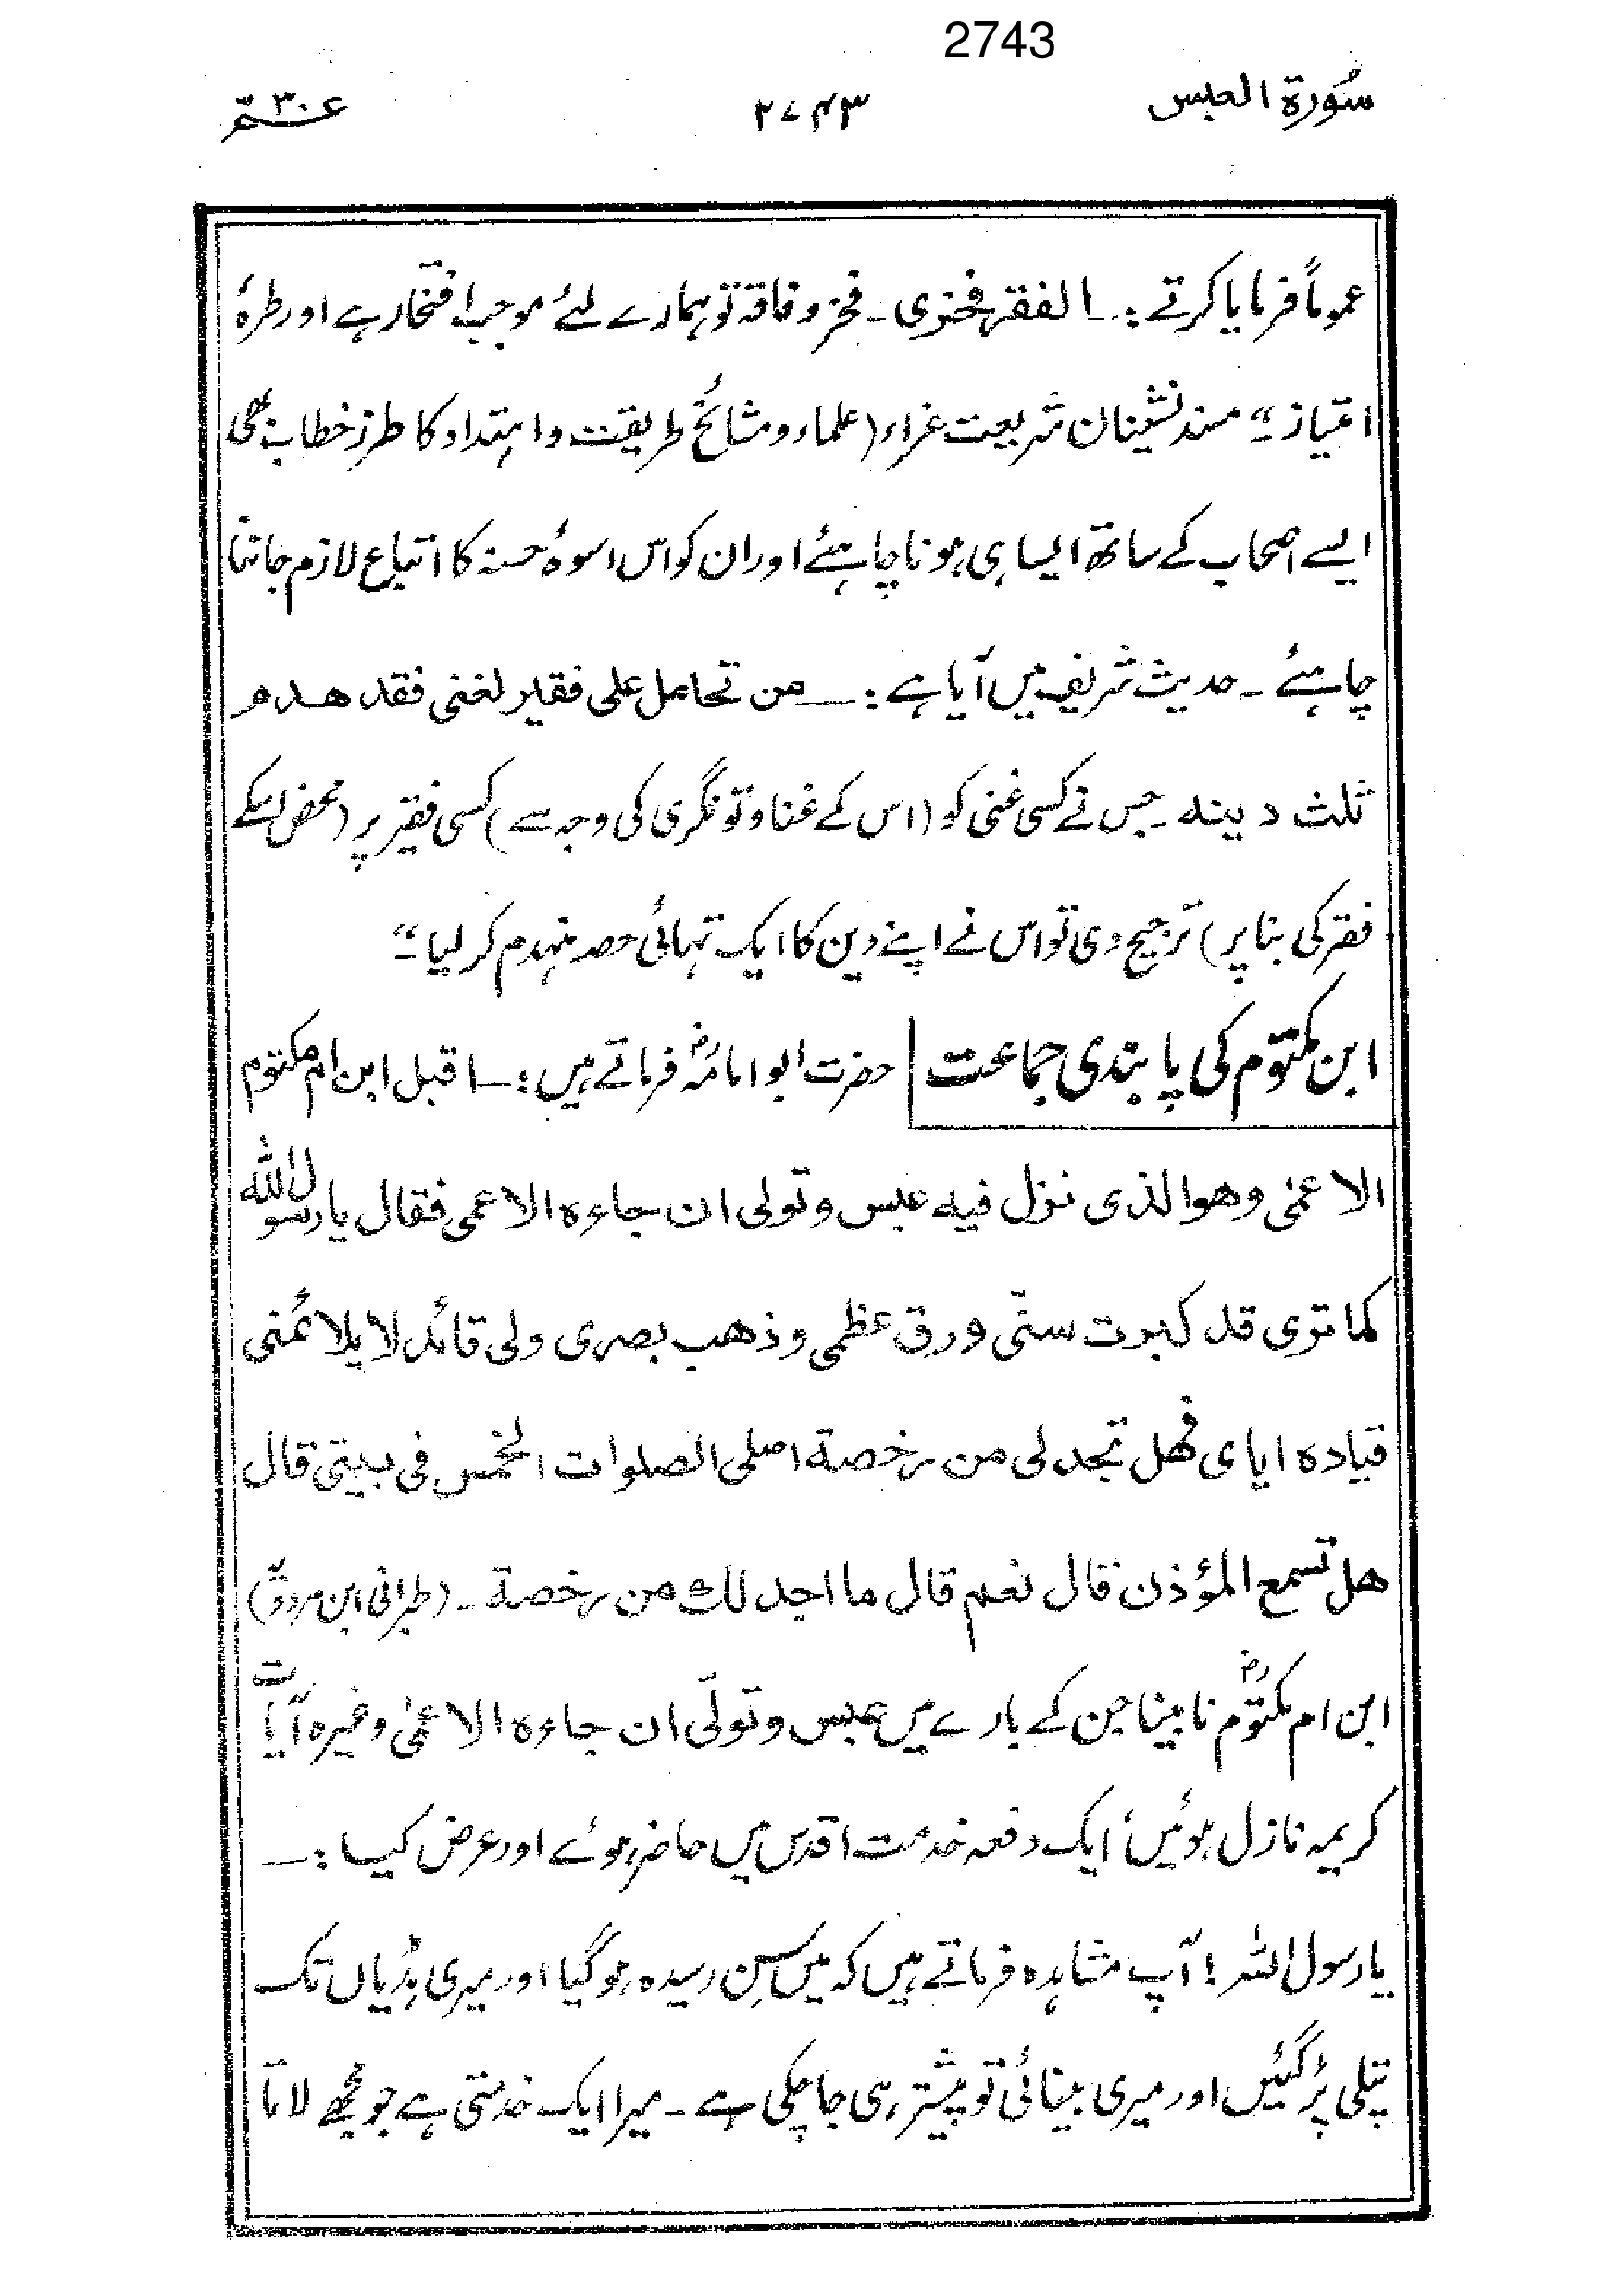 2743
سُورة العبس ۲۷۴۳ عـــم۳۰
عموماً فرمایا کرتے :۔ الفقر فخری ۔ فخر و فاقہ تو ہمارے لئے موجب افتخار ہے اور طرۂ
امتیاز ؎" مسند نشینان شریعت غراء (علماء و مشائخ طریقت و اہتداء کا طرز خطاب بھی
ایسے اصحاب کے ساتھ ایسا ہی ہونا چاہئے اور ان کو اس اسوۂ حسنہ کا اتباع لازم جاننا
چاہئے ۔ حدیث شریف میں آیا ہے :۔ من تحامل علی فقیر لغنی فقد ھدم
ثلث دینہ ۔ جس نے کسی غنی کو (اس کے غنا و تونگری کی وجہ سے) کسی فقیر پر (محض اسکے
فقر کی بنا پر) ترجیح دی تو اس نے اپنے دین کا ایک تہائی حصہ منہدم کر لیا ؎"
ابن مکتوم کی پابندی جماعت | حضرت ابو امامہؓ فرماتے ہیں :۔ اقبل ابن ام مکتوم
الاعمیٰ وھو الذی نزل فیہ عبس وتولی ان جاءہ الاعمی فقال یا رسول اللہ
کما تری قد کبرت سنّی ورق عظمی وذھب بصری ولی قائد لا یلائمنی
قیادہ ایای فھل تجد لی من رخصة اصلی الصلوات الخمس فی بیتی قال
ھل تسمع المؤذن قال نعم قال ما اجد لك من رخصة ۔ (طبرانی ابن مردویہ)
ابن ام مکتومؓ نابینا جن کے بارے میں عبس وتولّی ان جاءہ الاعمیٰ وغیرہ آیات
کریمہ نازل ہوئیں، ایک دفعہ خدمت اقدس میں حاضر ہوئے اور عرض کیا :۔
یا رسول اللہ ! آپ مشاہدہ فرماتے ہیں کہ میں سِن رسیدہ ہو گیا اور میری ہڈیاں تک
پتلی پڑ گئیں اور میری بینائی تو پیشتر ہی جا چکی ہے ۔ میرا ایک خدمتی ہے جو مجھے لاتا